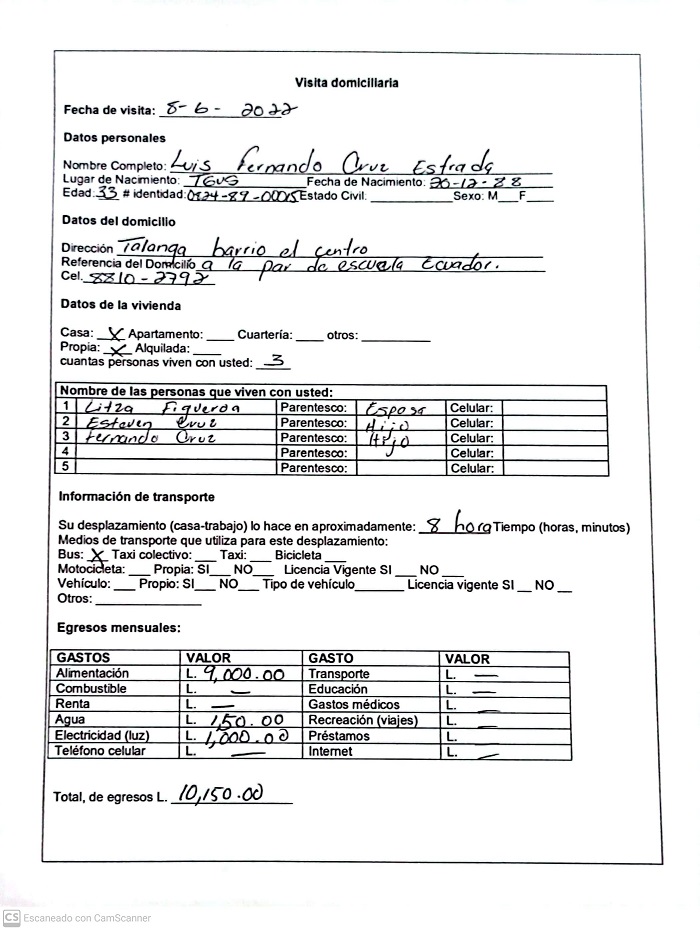 Visita domiciliaria
Fecha de visita: 8-6-2022
Datos personales
Nombre Completo: Luis Fernando Cruz Estrada
Lugar de Nacimiento: TGUS Fecha de Nacimiento: 20-12-88
Edad: 33 # identidad: 0824-89-00015 Estado Civil: ________ Sexo: M___F___
Datos del domicilio
Dirección Talanga barrio el centro
Referencia del Domicilio a la par de escuela Ecuador.
Cel. 8810-2792
Datos de la vivienda
Casa: X Apartamento: ____ Cuartería: ____ otros: ________
Propia: X Alquilada: ____
cuantas personas viven con usted: 3
Nombre de las personas que viven con usted:
1 Litza Figueroa Parentesco: Esposa Celular:
2 Estaven Cruz Parentesco: Hijo Celular:
3 Fernando Cruz Parentesco: Hijo Celular:
4 Parentesco: Celular:
5 Parentesco: Celular:
Información de transporte
Su desplazamiento (casa-trabajo) lo hace en aproximadamente: 8 hora Tiempo (horas, minutos)
Medios de transporte que utiliza para este desplazamiento:
Bus: X Taxi colectivo: ___ Taxi: ___ Bicicleta ___
Motocicleta: ___ Propia: SI___ NO___ Licencia Vigente SI ___ NO ___
Vehículo: ___ Propio: SI___ NO___ Tipo de vehículo_______ Licencia vigente SI __ NO __
Otros: ________
Egresos mensuales:
GASTOS VALOR GASTO VALOR
Alimentación L. 9,000.00 Transporte L. —
Combustible L. — Educación L. —
Renta L. — Gastos médicos L. —
Agua L. 150.00 Recreación (viajes) L. —
Electricidad (luz) L. 1,000.00 Préstamos L.
Teléfono celular L. — Internet L. —
Total, de egresos L. 10,150.00
CS Escaneado con CamScanner